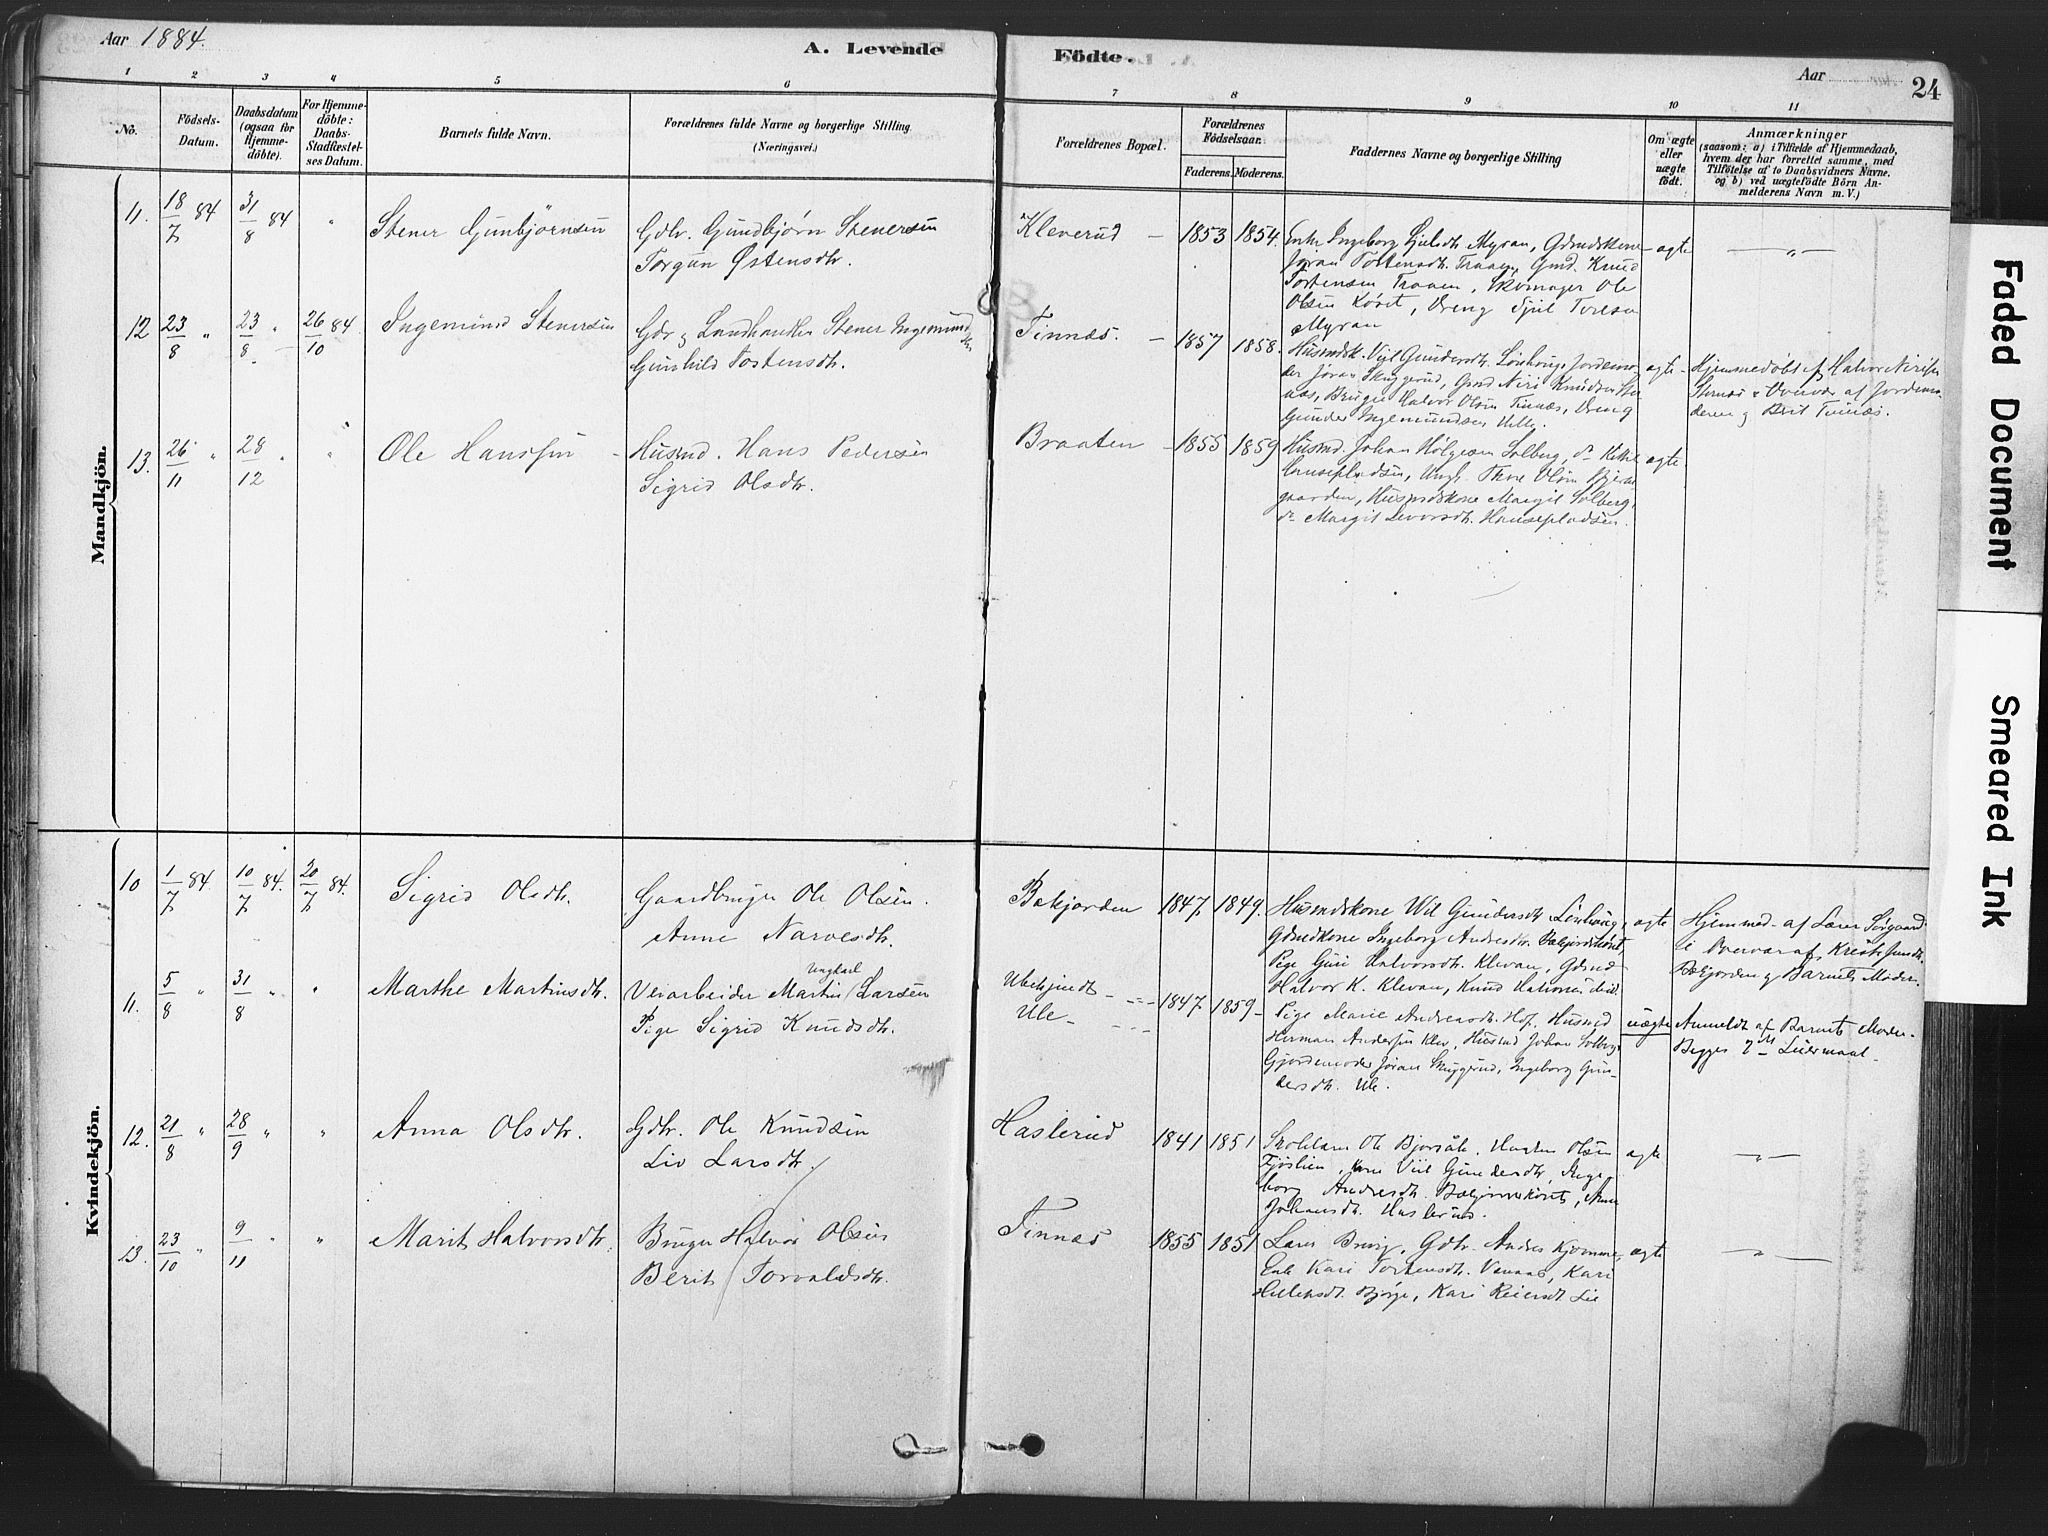 Aar 1884.
A. Levende
Födte.
Aar
24
1 2 3 4 5 6 7 8 9 10 11
No.
Födsels-
Datum.
Daabsdatum
(ogsaa for
Hjemme-
döbte).
For Hjemme-
döbte:
Daabs-
Stadfæstel-
ses Datum.
Barnets fulde Navn.
Forældrenes fulde Navne og borgerlige Stilling
(Næringsvei.)
Forældrenes Bopæl.
Forældrenes
Födselsaar.
Faderens. Moderens.
Faddernes Navne og borgerlige Stilling
Om ægte
eller
uægte
födt.
Anmærkninger
(saasom: a) i Tilfælde af Hjemmedaab,
hvem der har forrettet samme, med
Tilföielse af to Daabsvidners Navne.
og b) ved uægtefödte Börn An-
melderens Navn m. V.)
Mandkjön.
11. 18/7 84 31/8 84 " Stener Gunbjörnsen
Gdbr. Gundbjørn Stenersen
Torgun Østensdtr.
Kleverud - 1853 1854.
Enke Ingeborg Kjelsdtr Myran, Gdmdskone
Jøran Tostensdtr. Traaen, Gmd. Knud
Tostensen Traaen, Skomager Ole
Olsen Koret, Dreng Kjil Toresen
Myran
ægte
12 23/8 " 23/8 " 26/10 84. Ingemund Stenersen
Gdr og Landhandler Stener Ingemundsen
Gunhild Tostensdtr.
Tinnæs. - 1857 1858.
Husmdsk. Vejl Gundersdtr. Lønhaug, Jordemo-
der Jøran Skuggerud, Gmd Niri Knudsen Ste
næs, Bruger Halvor Olsen Tinnæs, Dreng
Gunder Ingemundsen
ægte -
Hjemmedøbt af Halvor Nirisen
Stenæs i Overvær af Jordemo-
deren og Berit Tinnæs.
13. 26/11 " 28/12 " " Ole Hanssen -
Husmd. Hans Pedersen
Sigrid Olsdtr.
Braaten - 1855 1859
Husmd. Johan Hølgesen Solberg, do Kittil
Hansepladsen, Ungk. Thore Olsen Bjerke
gaarden, Husmdskone Margit Solberg,
do Margit Levorsdtr. Hansepladsen.
ægte
Kvindekjön.
10 1/7 84. 10/7 84. 20/7 84. Sigrid Olsdtr.
Gaardbruger Ole Olsen.
Anne Narvesdtr.
Bækjorden 1847. 1849.
Husmdskone Vil Gundersdtr Lønhaug,
Gdmdkone Ingeborg Andresdtr. Bækjordskoret,
Pige Guri Halvorsdtr. Klevan, Gdmd
Halvor K. Klevan, Knud Halvorsen ibid.
ægte
Hjemmed. af Lærer Sørgaard
i Overvær af
Bækjorden og Barnets Moder.
11. 5/8 " 31/8 " " Marthe Martinsdtr.
Ungkarl
Veiarbeider Martin Larsen
Pige Sigrid Knudsdtr.
Ubekjendt -
Ule -
1847. 1859 -
Pige Marie Andreasdtr. Hof, Husmd
Herman Andersen Klev, Husmd Johan Solberg
Gjordemoder Jøran Skuggerud, Ingeborg Gun-
dersdtr. Ule.
uægte
Anmeldt af Barnets Moder.
Begges 2det Leiermaal.
12. 21/8 " 28/9 " " Anna Olsdtr.
Gdbr. Ole Knudsen
Liv Larsdtr.
Haslerud 1841 1851
Skolelærer Ole Bjorsåle, Olsen
Fjøslien, Kone Viil Gundersdtr, Inge
borg Andresdtr. Bækjordskoret, Anne
Johansdtr. Haslerud.
ægte
13. 23/10 " 9/11 " " Marit Halvorsdtr.
Bruger Halvor Olsen
Berit Torvaldsdtr.
Tinnæs 1855 1851
Lærer Brevig, Gdbr. Andres Kjomme,
Enke Kari Tostensdtr. Venaas, Kari
Hellensdtr. Bjørge, Kari Reiersdtr Lie
ægte
Faded Document
Smeared Ink